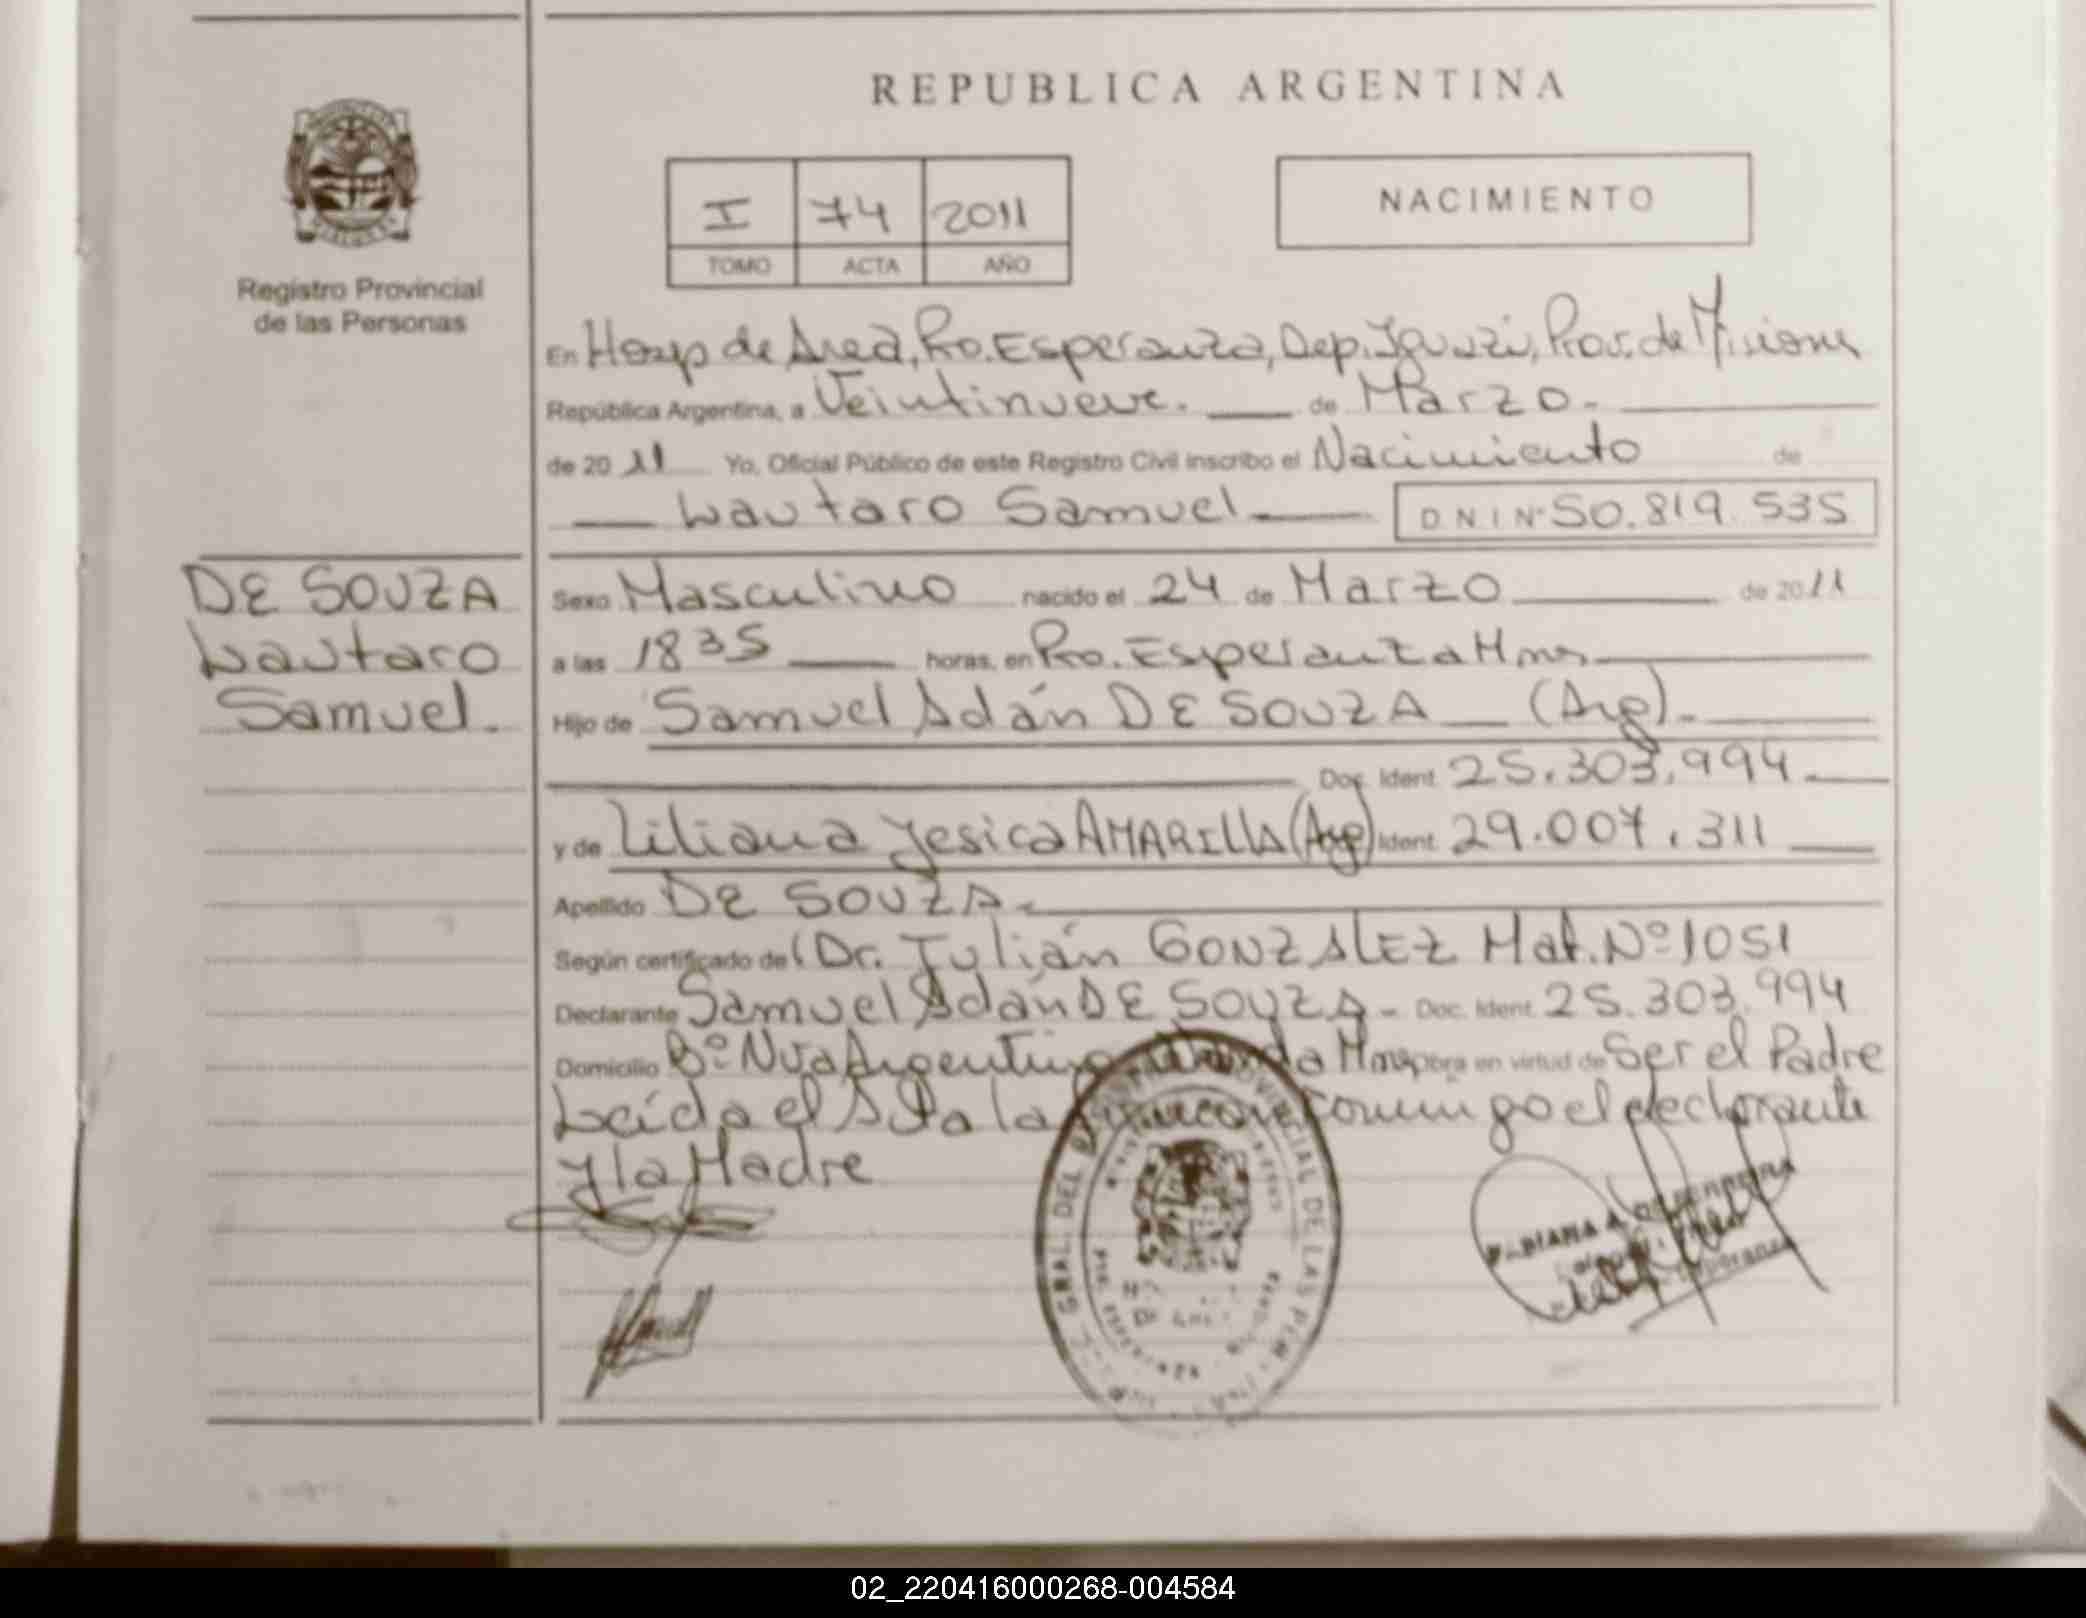 REPUBLICA ARGENTINA
I 74 2011
TOMO ACTA AÑO
NACIMIENTO
Registro Provincial
de las Personas
En Hosp de Area, Pto. Esperanza, Dep. Iguazú, Prov. de Misiones
República Argentina, a Veintinueve. de Marzo.
de 2011 Yo, Oficial Público de este Registro Civil inscribo el Nacimiento de
Lautaro Samuel DNI Nº 50.819.535
DE SOUZA
Lautaro
Samuel.
Sexo Masculino nacido el 24 de Marzo de 2011
a las 1835 horas, en Pto. Esperanza Mnes
Hijo de Samuel Adán DE SOUZA (Arg).
Doc. Ident. 25.303.994
y de Liliana Yesica AMARILLA (Arg) Ident. 29.007.311
Apellido DE SOUZA.
Según certificado del Dr. Julián GONZALEZ Mat. Nº 1051
Declarante Samuel Adán DE SOUZA - Doc. Ident. 25.303.994
Domicilio Bº Nva Argentina Wanda Mnes Obra en virtud de Ser el Padre
Leída el Acta la firman conmigo el declarante
y la Madre
GRAL. DEL REGISTRO PROVINCIAL DE LAS PER
02_220416000268-004584